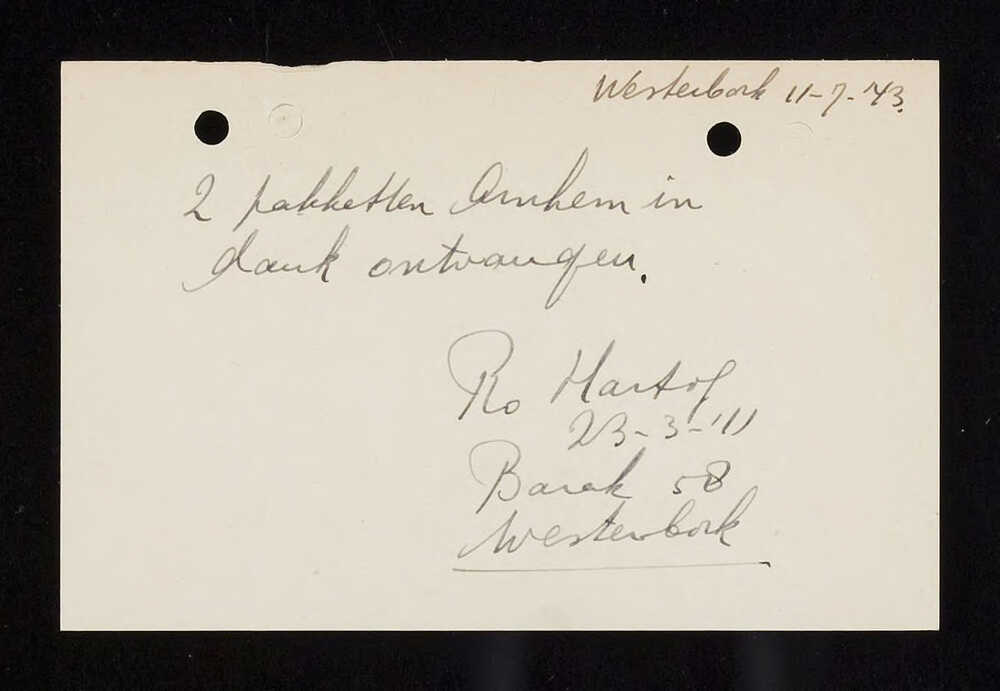 Westerbork 11-7-'43.
2 pakketten Arnhem in
dank ontvangen.
Ro Hartog
23-3-'11
Barak 58
Westerbork